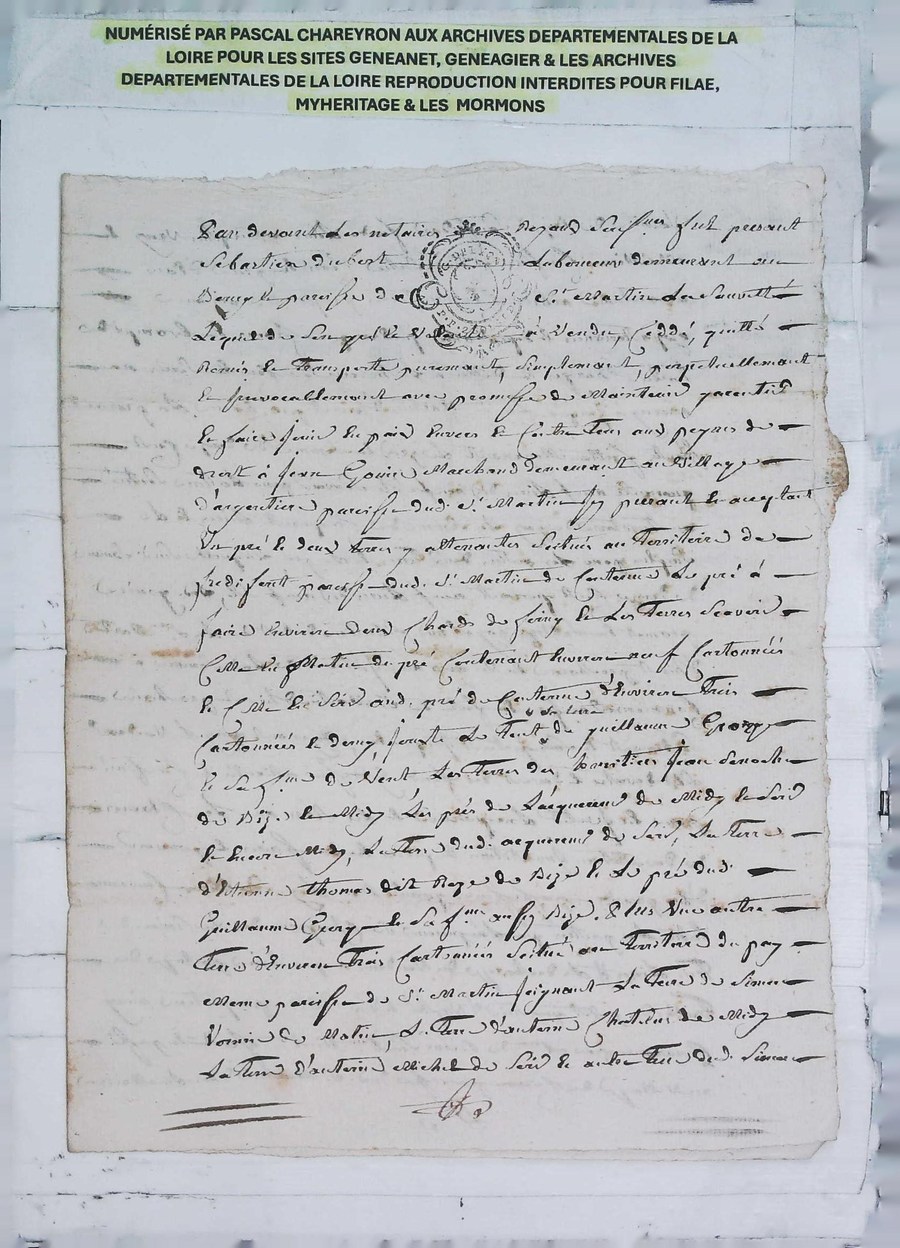 NUMÉRISÉ PAR PASCAL CHAREYRON AUX ARCHIVES DEPARTEMENTALES DE LA
LOIRE POUR LES SITES GENEANET, GENEAGIER & LES ARCHIVES
DEPARTEMENTALES DE LA LOIRE REPRODUCTION INTERDITES POUR FILAE,
MYHERITAGE & LES MORMONS
Par devant Les notaires fut presant
Sebastien dubost Laboureur demeurant au
Bourg de paroisse de St Martin La Sauveté
Lequel de Son gré Vendu, Céddé, quitté
Remis et Transporte purement, Simplement, perpetuellement
Et Irrevocablement avec promesse de Maintenir garentir
et faire Jouir En paix Envers et Contre Tous aux peynes de
droit à Jean Marchand demeurant au Village
d'argentiere paroisse dud. St Martin Icy presant et acceptant
Un pré et deux terres y attenantes Scitués au Territoire de
paroisse dud. St Martin de Contenue Le pré à
faire Environ deux Chards de foing et Les Terres Scavoir
Celle du Matin du pré Contenant Environ neuf Cartonnées
Et Celle de Soir aud. pré de Contenue d'Environ Trois
Cartonnées et demy, Jouxte Le Tout de guillaume George
et Sa fme de Vent Les Terres des heritiers Jean
de Bize et Midy Les prés de L'acquereur de Midy et Soir
et Encore Midy, La Terre dud. acquereur de Soir, La Terre
d'Etienne thomas dit de Bize Et Le pré dud.
Guillaume George et Sa fme aussy Bize. Plus Une autre
Terre d'Environ Trois Cartonnées Scitué au Territoire du puy
meme paroisse de St Martin Joignant La Terre de Simon
de Matin, La Terre d'antoine de Midy
La Terre d'antoine Michel de Soir et autre Terre dud. Simon